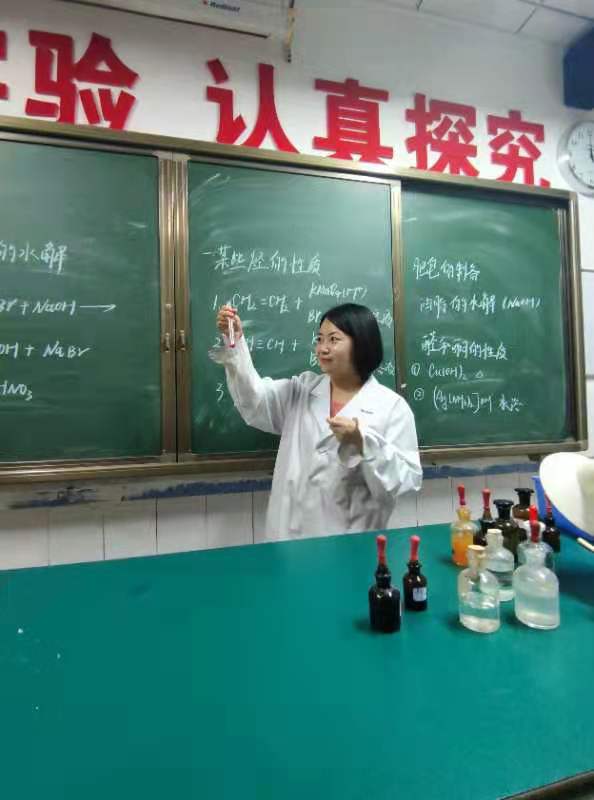 验 认真探究
的水解
Br + NaOH ⟶
OH + NaBr
HNO₃
一某些烃的性质
1. CH₂=CH₂ +
KMnO₄(H⁺)
Br
2 CH≡CH +
3
肥皂的制备
油脂的水解 (NaOH)
醛 的性质
① Cu(OH)₂ △
② [Ag(NH₃)₂]OH 水浴